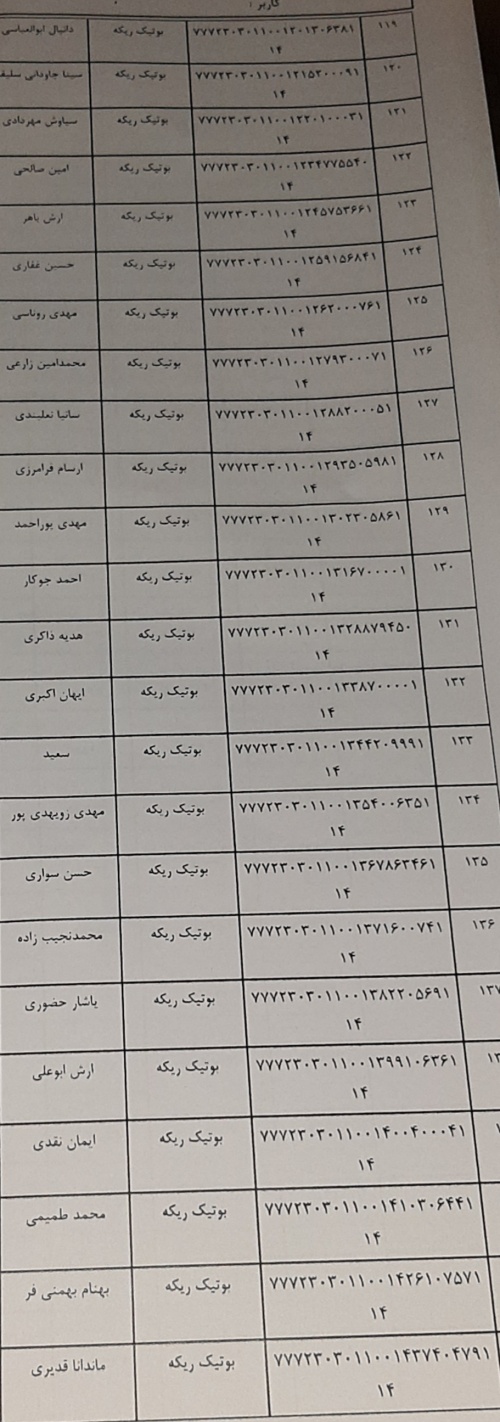 کاربر :
۱۱۹ ۷۷۷۲۳۰۳۰۱۱۰۰۱۲۰۱۳۰۶۳۸۱ بوتیک ریکه دانیال ابوالعباسی
۱۴
۱۲۰ ۷۷۷۲۳۰۳۰۱۱۰۰۱۲۱۵۲۰۰۰۹۱ بوتیک ریکه سینا جاودانی
۱۴
۱۲۱ ۷۷۷۲۳۰۳۰۱۱۰۰۱۲۲۰۱۰۰۰۳۱ بوتیک ریکه سیاوش مهردادی
۱۴
۱۲۲ ۷۷۷۲۳۰۳۰۱۱۰۰۱۲۳۴۷۷۵۵۴۰ بوتیک ریکه امین صالحی
۱۴
۱۲۳ ۷۷۷۲۳۰۳۰۱۱۰۰۱۲۴۵۷۵۳۶۶۱ بوتیک ریکه ارش باهر
۱۴
۱۲۴ ۷۷۷۲۳۰۳۰۱۱۰۰۱۲۵۹۱۵۶۸۴۱ بوتیک ریکه حسین غفاری
۱۴
۱۲۵ ۷۷۷۲۳۰۳۰۱۱۰۰۱۲۶۲۰۰۰۷۶۱ بوتیک ریکه مهدی روناسی
۱۴
۱۲۶ ۷۷۷۲۳۰۳۰۱۱۰۰۱۲۷۹۳۰۰۰۷۱ بوتیک ریکه محمدامین زارعی
۱۴
۱۲۷ ۷۷۷۲۳۰۳۰۱۱۰۰۱۲۸۸۲۰۰۰۵۱ بوتیک ریکه سانیا نعلبندی
۱۴
۱۲۸ ۷۷۷۲۳۰۳۰۱۱۰۰۱۲۹۳۵۰۵۹۸۱ بوتیک ریکه ارسام فرامرزی
۱۴
۱۲۹ ۷۷۷۲۳۰۳۰۱۱۰۰۱۳۰۲۳۰۵۸۶۱ بوتیک ریکه مهدی پوراحمد
۱۴
۱۳۰ ۷۷۷۲۳۰۳۰۱۱۰۰۱۳۱۶۷۰۰۰۰۱ بوتیک ریکه احمد جوکار
۱۴
۱۳۱ ۷۷۷۲۳۰۳۰۱۱۰۰۱۳۲۸۸۷۹۴۵۰ بوتیک ریکه هدیه ذاکری
۱۴
۱۳۲ ۷۷۷۲۳۰۳۰۱۱۰۰۱۳۳۸۷۰۰۰۰۱ بوتیک ریکه ایهان اکبری
۱۴
۱۳۳ ۷۷۷۲۳۰۳۰۱۱۰۰۱۳۴۴۲۰۹۹۹۱ بوتیک ریکه سعید
۱۴
۱۳۴ ۷۷۷۲۳۰۳۰۱۱۰۰۱۳۵۴۰۰۶۳۵۱ بوتیک ریکه مهدی زویهدی پور
۱۴
۱۳۵ ۷۷۷۲۳۰۳۰۱۱۰۰۱۳۶۷۸۶۳۴۶۱ بوتیک ریکه حسن سواری
۱۴
۱۳۶ ۷۷۷۲۳۰۳۰۱۱۰۰۱۳۷۱۶۰۰۷۴۱ بوتیک ریکه محمدنجیب زاده
۱۴
۷۷۷۲۳۰۳۰۱۱۰۰۱۳۸۲۲۰۵۶۹۱ بوتیک ریکه یاشار حضوری
۱۴
۷۷۷۲۳۰۳۰۱۱۰۰۱۳۹۹۱۰۶۳۶۱ بوتیک ریکه ارش ابوعلی
۱۴
۷۷۷۲۳۰۳۰۱۱۰۰۱۴۰۰۴۰۰۰۴۱ بوتیک ریکه ایمان نقدی
۱۴
۷۷۷۲۳۰۳۰۱۱۰۰۱۴۱۰۳۰۶۴۴۱ بوتیک ریکه محمد طمیمی
۱۴
۷۷۷۲۳۰۳۰۱۱۰۰۱۴۲۶۱۰۷۵۷۱ بوتیک ریکه بهنام بهمنی فر
۱۴
۷۷۷۲۳۰۳۰۱۱۰۰۱۴۳۷۴۰۴۷۹۱ بوتیک ریکه ماندانا قدیری
۱۴